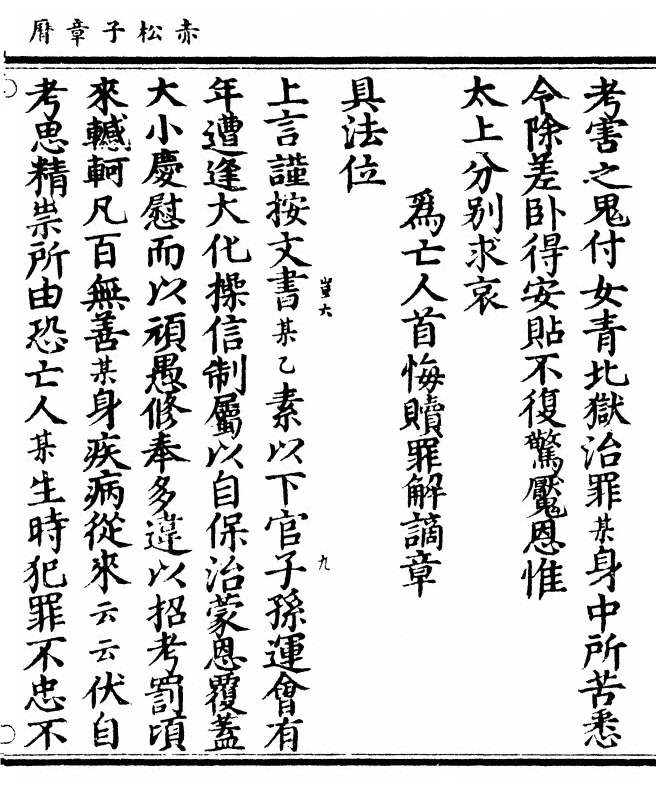 赤松子章曆
考害之鬼付女青北獄治罪某身中所苦悉
令除差卧得安貼不復驚魘恩惟
太上分别求哀
爲亡人首悔贖罪解謫章
具法位
上言謹按文書某乙素以下官子孫運會有
豈大
九
年遭逢大化操信制屬以自保治蒙恩覆蓋
大小慶慰而以頑愚修奉多違以招考罰頃
來轗軻凡百無善某身疾病從來云云伏自
考思精祟所由恐亡人某生時犯罪不忠不